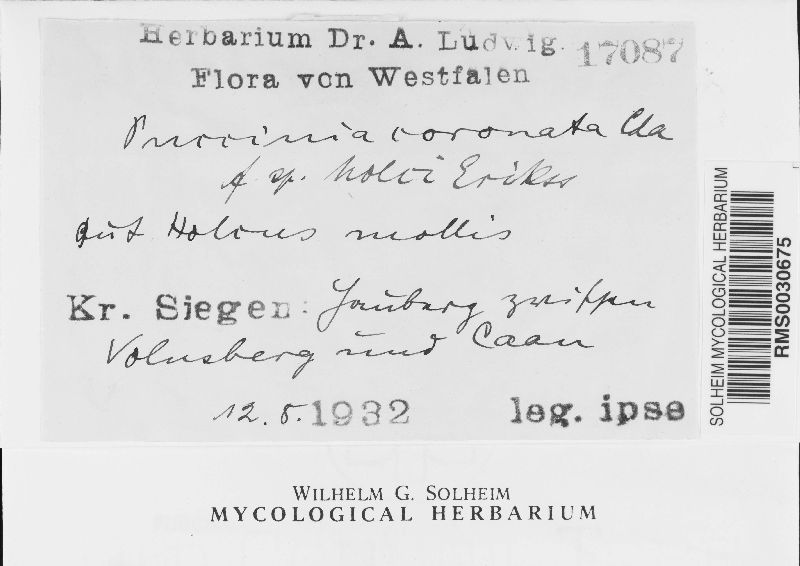 Herbarium Dr. A. Ludwig. 17087
Flora von Westfalen
Puccinia coronata Cda
f sp. holci Erikss
auf Holcus mollis
Kr. Siegen: zwischen
Volnsberg und Caan
12. 8. 1932 leg. ipse
SOLHEIM MYCOLOGICAL HERBARIUM
RMS0030675
WILHELM G. SOLHEIM
MYCOLOGICAL HERBARIUM